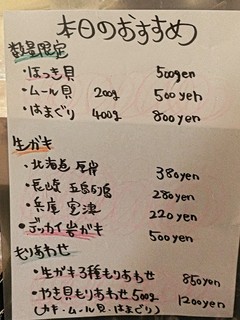 本日のおすすめ
数量限定
・ほっき貝 500yen
・ムール貝 200g 500yen
・はまぐり 400g 800yen
生がき
・北海道 厚岸 380yen
・長崎 五島列島 280yen
・兵庫 室津 220yen
・デッカイ岩がき 500yen
もりあわせ
・生がき3種もりあわせ 850yen
・やき貝もりあわせ 500g 1200yen
(カキ・ムール貝・はまぐり)